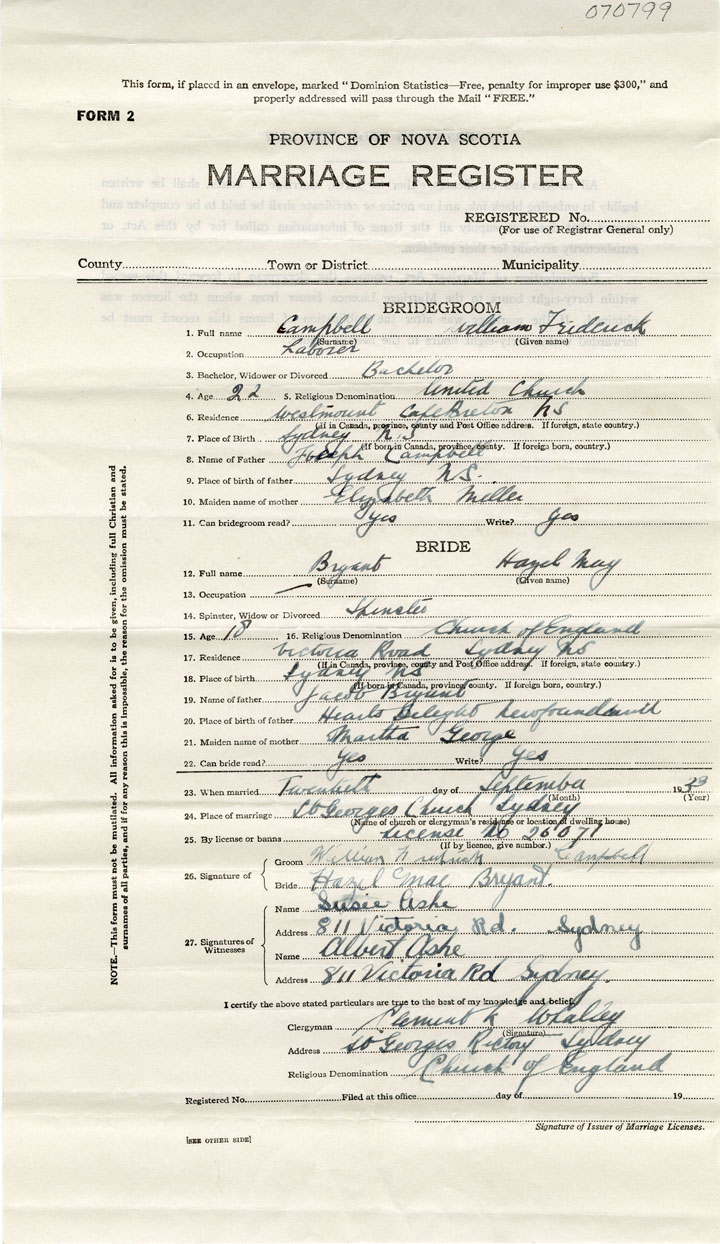 070799
This form, if placed in an envelope, marked "Dominion Statistics—Free, penalty for improper use $300," and
properly addressed will pass through the Mail "FREE."
FORM 2
PROVINCE OF NOVA SCOTIA
MARRIAGE REGISTER
REGISTERED No.
(For use of Registrar General only)
County Town or District Municipality
BRIDEGROOM
1. Full name Campbell William Frederick
(Surname) (Given name)
2. Occupation Laborer
3. Bachelor, Widower or Divorced Bachelor
4. Age 22 5. Religious Denomination United Church
6. Residence Westmount Cape Breton NS
(If in Canada, province, county and Post Office address. If foreign, state country.)
7. Place of Birth Sydney N.S
(If born in Canada, province, county. If foreign born, country.)
8. Name of Father Joseph Campbell
9. Place of birth of father Sydney NS.
10. Maiden name of mother Elizabeth Miller
11. Can bridegroom read? Yes Write? Yes
BRIDE
12. Full name Bryant Hazel May
(Surname) (Given name)
13. Occupation —
14. Spinster, Widow or Divorced Spinster
15. Age 18 16. Religious Denomination Church of England
17. Residence Victoria Road Sydney NS
(If in Canada, province, county and Post Office address. If foreign, state country.)
18. Place of birth Sydney NS
(If born in Canada, province, county. If foreign born, country.)
19. Name of father Jacob Bryant
20. Place of birth of father Hearts Delight Newfoundland
21. Maiden name of mother Martha George
22. Can bride read? Yes Write? Yes
23. When married Twentieth day of September 19
(Month) (Year)
24. Place of marriage St Georges Church Sydney
(Name of church or clergyman's residence or location of dwelling house)
25. By license or banns License No 26071
(If by licence, give number.)
26. Signature of
Groom William Fredrick Campbell
Bride Hazel Mae Bryant.
27. Signatures of Witnesses
Name Susie Ashe
Address 811 Victoria Rd. Sydney
Name Albert Ashe
Address 811 Victoria Rd Sydney.
I certify the above stated particulars are true to the best of my knowledge and belief.
Clergyman Clement Whalley
(Signature)
Address St Georges Rectory Sydney
Religious Denomination Church of England
Registered No. Filed at this office day of 19
Signature of Issuer of Marriage Licenses.
[SEE OTHER SIDE]
NOTE.—This form must not be mutilated. All information asked for is to be given, including full Christian and
surnames of all parties, and if for any reason this is impossible, the reason for the omission must be stated.